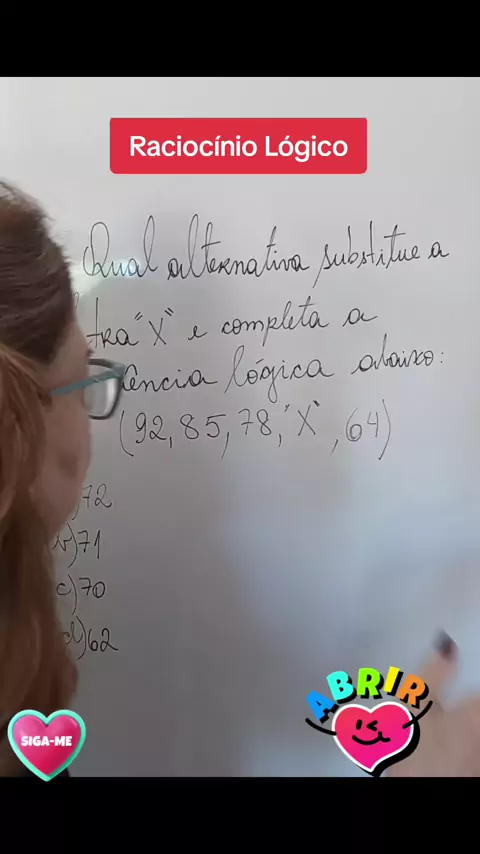 Raciocínio Lógico
Qual alternativa substitue a
"X" e completa a
lógica abaixo:
(92, 85, 78, "X", 64)
72
b) 71
c) 70
d) 62
ABRIR
SIGA-ME